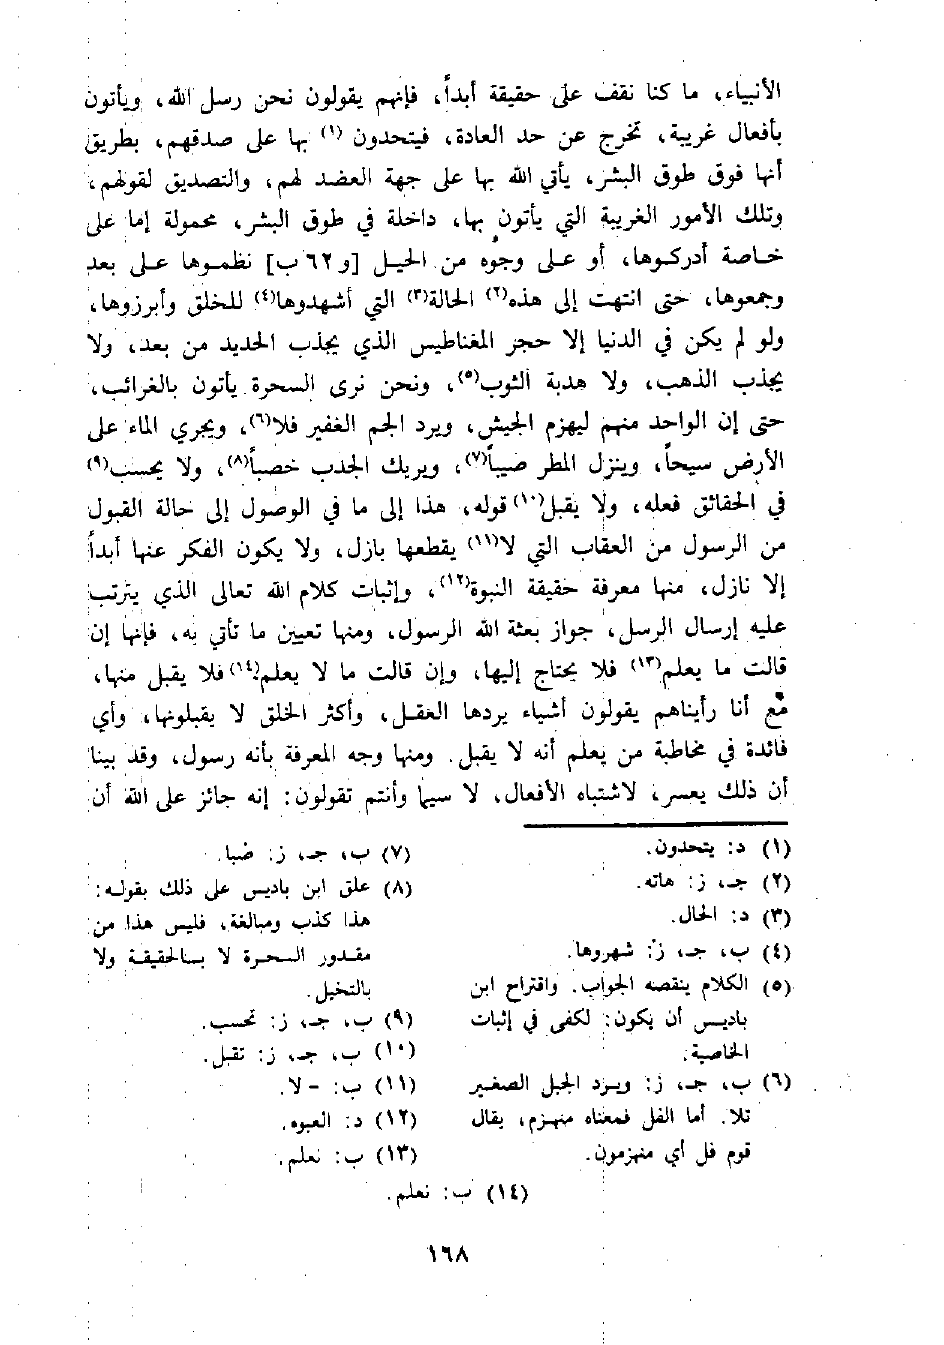 الأنبياء، ما كنا نقف على حقيقة أبداً، فإنهم يقولون نحن رسل الله، ويأتون
بأفعال غريبة، تخرج عن حد العادة، فيتحدون (١) بها على صدقهم، بطريق
أنها فوق طوق البشر، يأتي الله بها على جهة العضد لهم، والتصديق لقولهم،
وتلك الأمور الغريبة التي يأتون بها، داخلة في طوق البشر، محمولة إما على
خاصة أدركوها، أو على وجوه من الحيل [و ٦٢ ب] نظموها على بعد
وجمعوها، حتى انتهت إلى هذه(٢) الحالة(٣) التي أشهدوها(٤) للخلق وأبرزوها،
ولو لم يكن في الدنيا إلا حجر المغناطيس الذي يجذب الحديد من بعد، ولا
يجذب الذهب، ولا هدبة الثوب(٥)، ونحن نرى السحرة يأتون بالغرائب،
حتى إن الواحد منهم ليهزم الجيش، ويرد الجم الغفير فلا(٦)، ويجري الماء على
الأرض سيحاً، وينزل المطر صيباً(٧)، ويريك الجدب خصباً(٨)، ولا يحسب(٩)
في الحقائق فعله، ولا يقبل(١٠) قوله، هذا إلى ما في الوصول إلى حالة القبول
من الرسول من العقاب التي لا(١١) يقطعها بازل، ولا يكون الفكر عنها أبداً
إلا نازل، منها معرفة حقيقة النبوة(١٢)، وإثبات كلام الله تعالى الذي يترتب
عليه إرسال الرسل، جواز بعثة الله الرسول، ومنها تعيين ما تأتي به، فإنها إن
قالت ما يعلم(١٣) فلا يحتاج إليها، وإن قالت ما لا يعلم(١٤) فلا يقبل منها،
مع أنا رأيناهم يقولون أشياء يردها العقل، وأكثر الخلق لا يقبلونها، وأي
فائدة في مخاطبة من يعلم أنه لا يقبل. ومنها وجه المعرفة بأنه رسول، وقد بينا
أن ذلك يعسر، لاشتباه الأفعال، لا سيما وأنتم تقولون: إنه جائز على الله أن
(١) د: يتحدون.
(٢) جـ، ز: هاته.
(٣) د: الحال.
(٤) ب، جـ، ز: شهروها.
(٥) الكلام ينقصه الجواب. واقتراح ابن
باديس أن يكون: لكفى في إثبات
الخاصية.
(٦) ب، جـ، ز: ويرد الجبل الصغير
تلا. أما الفل فمعناه منهزم، يقال
قوم فل أي منهزمون.
(٧) ب، جـ، ز: ضبا.
(٨) علق ابن باديس على ذلك بقوله:
هذا كذب ومبالغة، فليس هذا من
مقدور السحرة لا بالحقيقة ولا
بالتخيل.
(٩) ب، جـ، ز: تحسب.
(١٠) ب، جـ، ز: تقبل.
(١١) ب: - لا.
(١٢) د: العبوه.
(١٣) ب: نعلم.
(١٤) ب: نعلم.
١٦٨